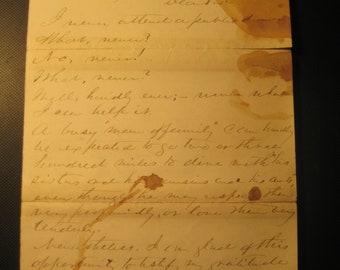 I never attend a public
What, never?
No, never!
What, never?
Well, hardly ever; — never when
I can help it.
A busy "man of family" can hardly
be expected to go two or three
hundred miles to dine with his
sisters and his cousins and his aunts
even though he may respect them
very profoundly, or love them very
tenderly.
Nevertheless, I am glad of this
opportunity to testify my gratitude